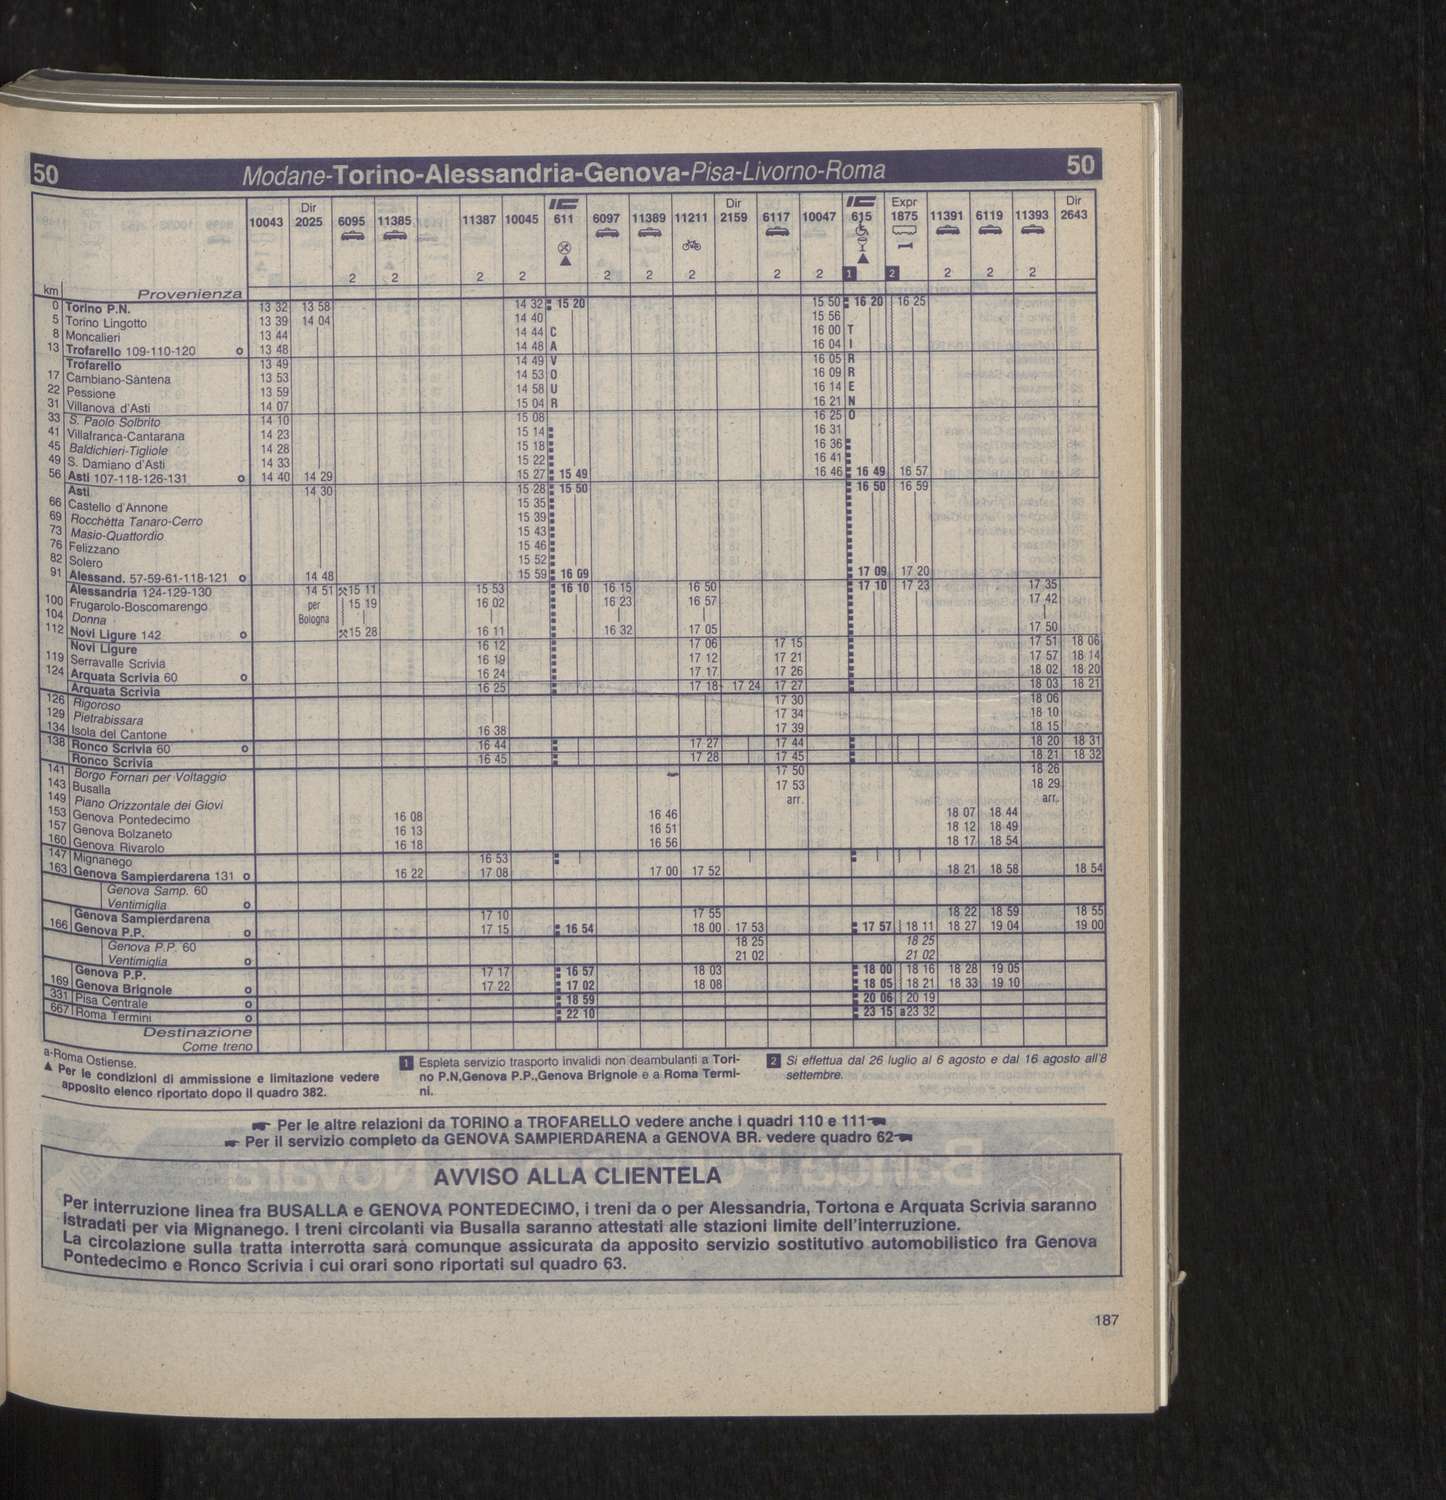 50 Modane-Torino-Alessandria-Genova-Pisa-Livorno-Roma 50
Dir Dir Expr Dir
10043 2025 6095 11385 11387 10045 611 6097 11389 11211 2159 6117 10047 615 1875 11391 6119 11393 2643
2 2 2 2 2 2 2 2 2 1 2 2 2 2
km Provenienza
0 Torino P.N. 13 32 13 58 14 32 15 20 15 50 16 20 16 25
5 Torino Lingotto 13 39 14 04 14 40 15 56
8 Moncalieri 13 44 14 44 C 16 00 T
13 Trofarello 109-110-120 o 13 48 14 48 A 16 04 I
Trofarello 13 49 14 49 V 16 05 R
17 Cambiano-Santena 13 53 14 53 O 16 09 R
22 Pessione 13 59 14 58 U 16 14 E
31 Villanova d'Asti 14 07 15 04 R 16 21 N
33 S. Paolo Solbrito 14 10 15 08 16 25 O
41 Villafranca-Cantarana 14 23 15 14 16 31
45 Baldichieri-Tigliole 14 28 15 18 16 36
49 S. Damiano d'Asti 14 33 15 22 16 41
56 Asti 107-118-126-131 o 14 40 14 29 15 27 15 49 16 46 16 49 16 57
Asti 14 30 15 28 15 50 16 50 16 59
66 Castello d'Annone 15 35
69 Rocchetta Tanaro-Cerro 15 39
73 Masio-Quattordio 15 43
76 Felizzano 15 46
82 Solero 15 52
91 Alessand. 57-59-61-118-121 o 14 48 15 59 16 09 17 09 17 20
Alessandria 124-129-130 14 51 15 11 15 53 16 10 16 15 16 50 17 10 17 23 17 35
100 Frugarolo-Boscomarengo per 15 19 16 02 16 23 16 57 17 42
104 Donna Bologna
112 Novi Ligure 142 o 15 28 16 11 16 32 17 05 17 50
Novi Ligure 16 12 17 06 17 15 17 51 18 06
119 Serravalle Scrivia 16 19 17 12 17 21 17 57 18 14
124 Arquata Scrivia 60 o 16 24 17 17 17 26 18 02 18 20
Arquata Scrivia 16 25 17 18 17 24 17 27 18 03 18 21
126 Rigoroso 17 30 18 06
129 Pietrabissara 17 34 18 10
134 Isola del Cantone 16 38 17 39 18 15
138 Ronco Scrivia 60 o 16 44 17 27 17 44 18 20 18 31
Ronco Scrivia 16 45 17 28 17 45 18 21 18 32
141 Borgo Fornari per Voltaggio 17 50 18 26
143 Busalla 17 53 18 29
149 Piano Orizzontale dei Giovi arr. arr.
153 Genova Pontedecimo 16 08 16 46 18 07 18 44
157 Genova Bolzaneto 16 13 16 51 18 12 18 49
160 Genova Rivarolo 16 18 16 56 18 17 18 54
147 Mignanego 16 53
163 Genova Sampierdarena 131 o 16 22 17 08 17 00 17 52 18 21 18 58 18 54
Genova Samp. 60
Ventimiglia o
Genova Sampierdarena 17 10 17 55 18 22 18 59 18 55
166 Genova P.P. o 17 15 16 54 18 00 17 53 17 57 18 11 18 27 19 04 19 00
Genova P.P. 60 18 25 18 25
Ventimiglia o 21 02 21 02
Genova P.P. 17 17 16 57 18 03 18 00 18 16 18 28 19 05
169 Genova Brignole o 17 22 17 02 18 08 18 05 18 21 18 33 19 10
331 Pisa Centrale o 18 59 20 06 20 19
667 Roma Termini o 22 10 23 15 a23 32
Destinazione
Come treno
a-Roma Ostiense.
▲ Per le condizioni di ammissione e limitazione vedere
apposito elenco riportato dopo il quadro 382.
1 Espleta servizio trasporto invalidi non deambulanti a Tori-
no P.N,Genova P.P.,Genova Brignole e a Roma Termi-
ni.
2 Si effettua dal 26 luglio al 6 agosto e dal 16 agosto all'8
settembre.
Per le altre relazioni da TORINO a TROFARELLO vedere anche i quadri 110 e 111
Per il servizio completo da GENOVA SAMPIERDARENA a GENOVA BR. vedere quadro 62
AVVISO ALLA CLIENTELA
Per interruzione linea fra BUSALLA e GENOVA PONTEDECIMO, i treni da o per Alessandria, Tortona e Arquata Scrivia saranno
istradati per via Mignanego. I treni circolanti via Busalla saranno attestati alle stazioni limite dell'interruzione.
La circolazione sulla tratta interrotta sarà comunque assicurata da apposito servizio sostitutivo automobilistico fra Genova
Pontedecimo e Ronco Scrivia i cui orari sono riportati sul quadro 63.
187